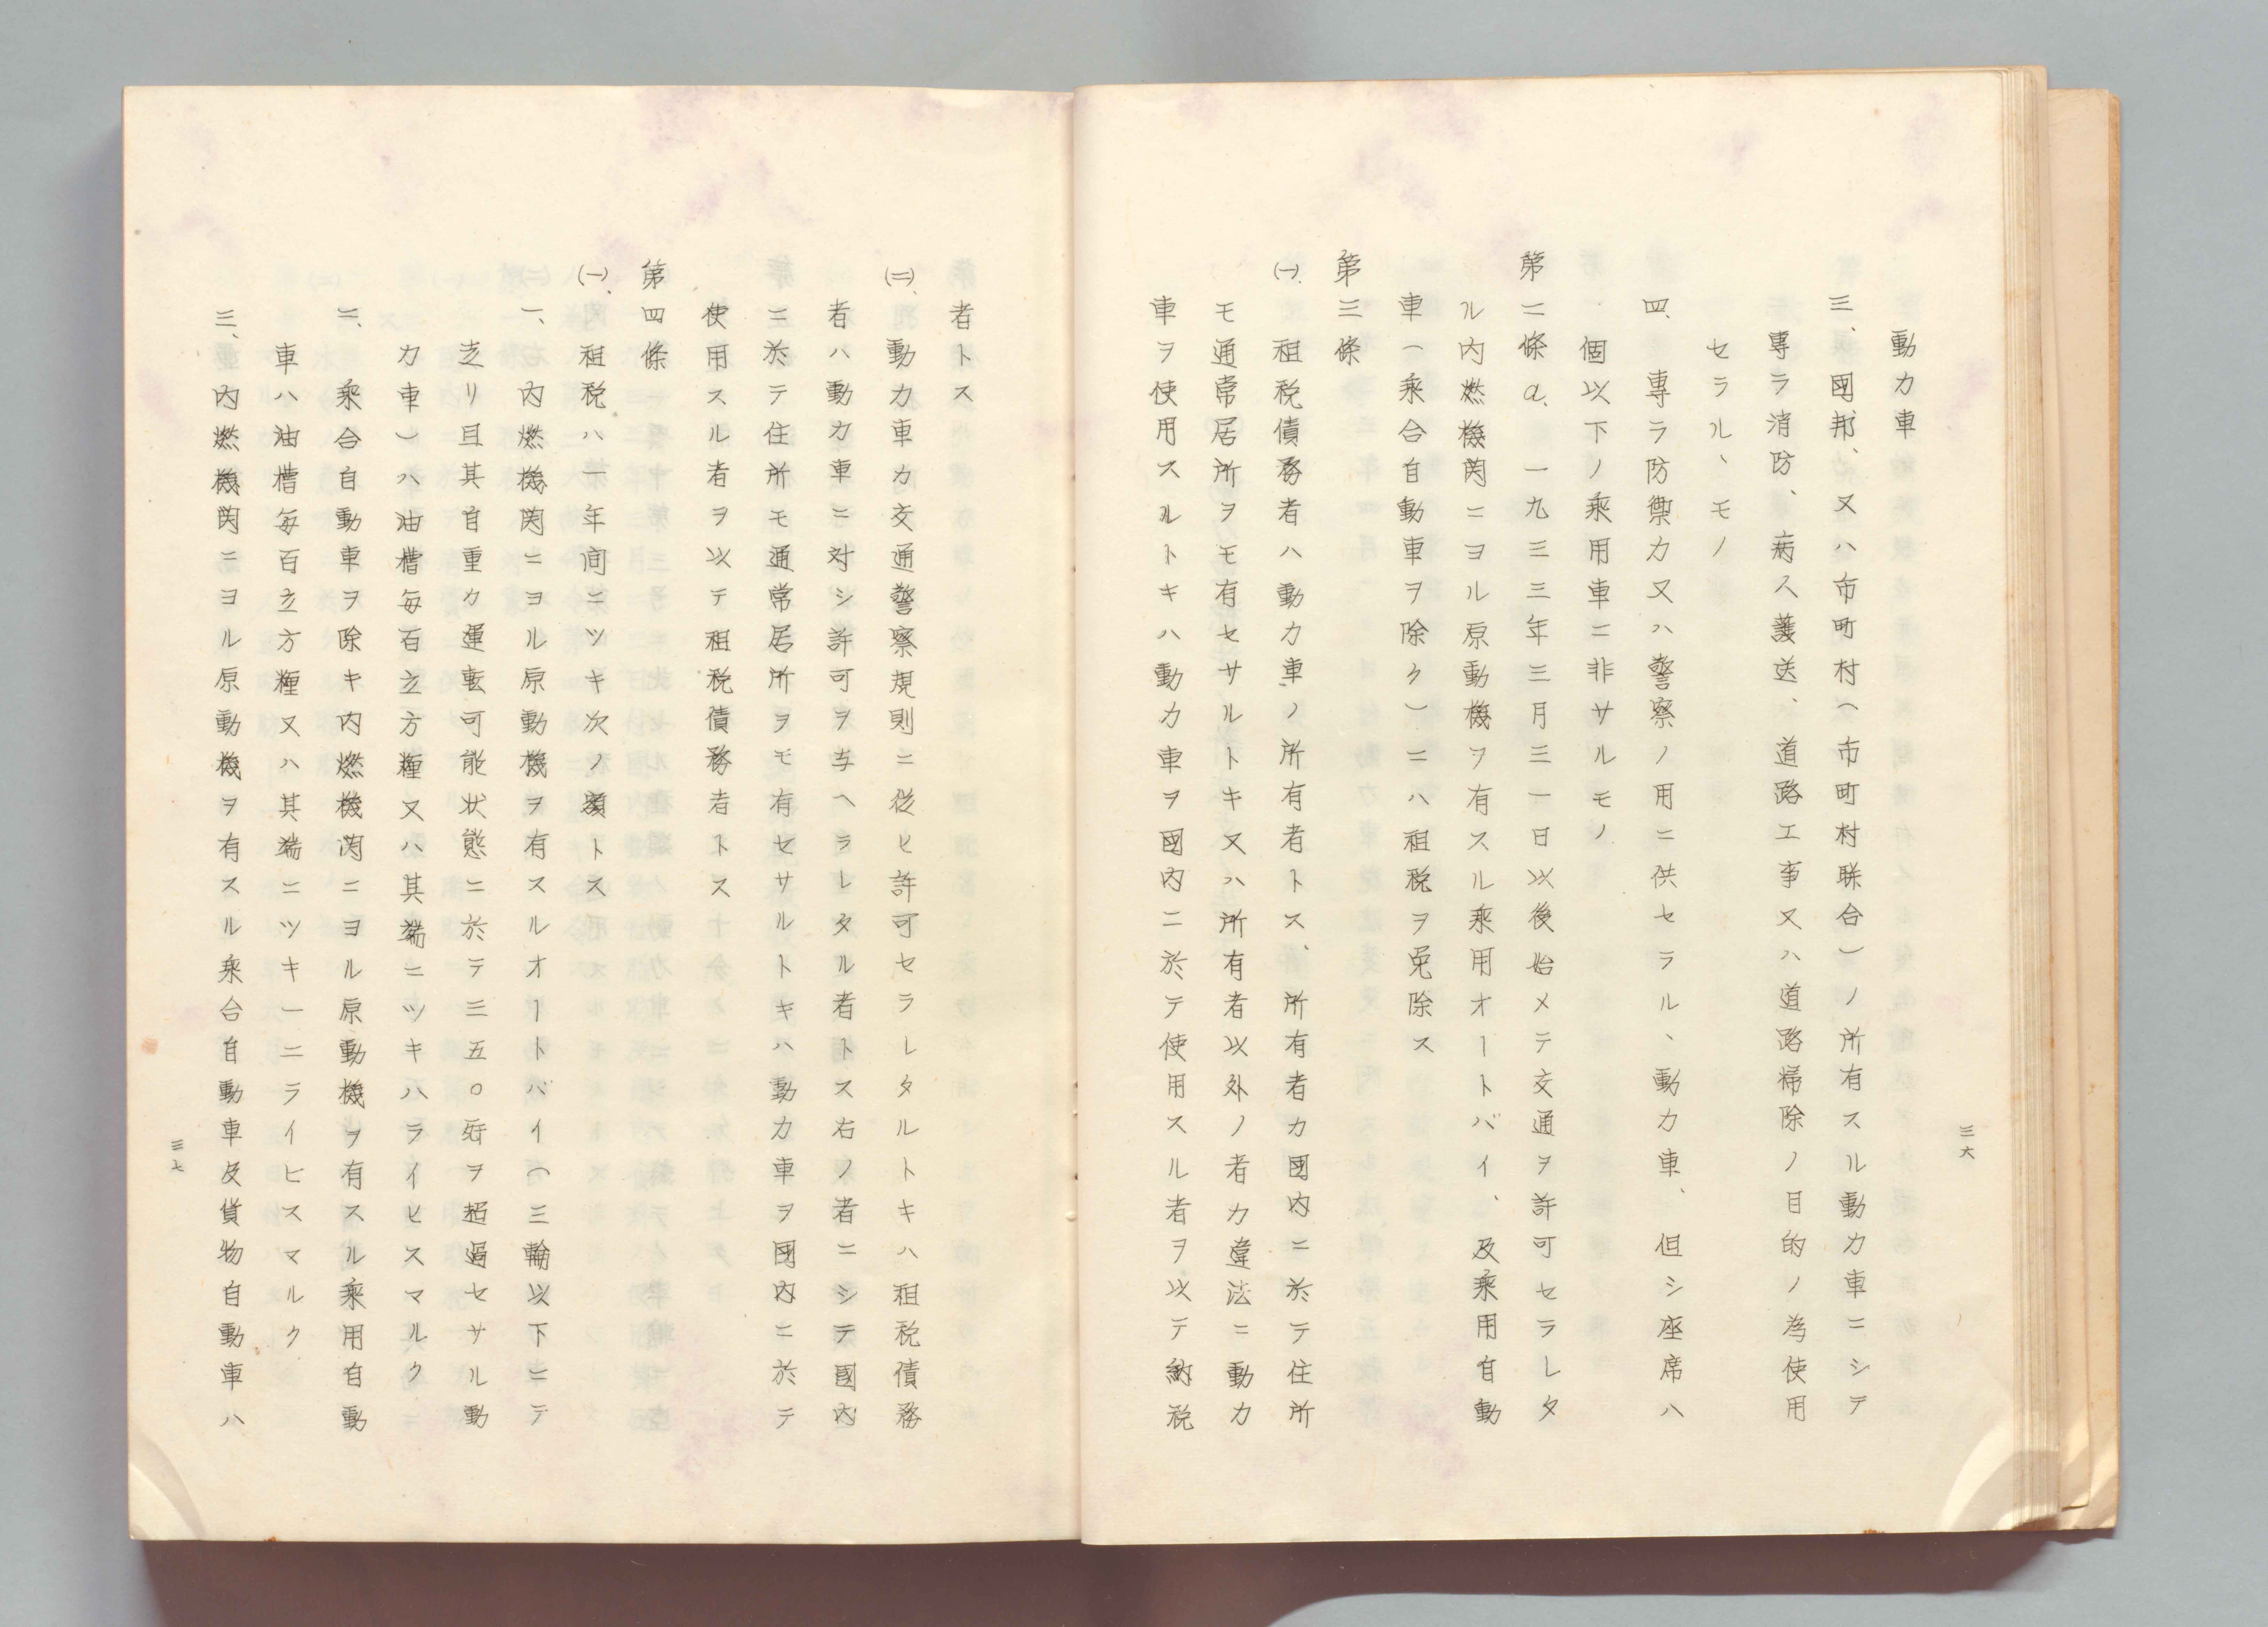 動力車
三、國邦、又ハ市町村（市町村聯合）ノ所有スル動力車ニシテ
專ラ消防、病人護送、道路工事又ハ道路掃除ノ目的ノ為使用
セラルヽモノ
四、專ラ防禦力又ハ警察ノ用ニ供セラルヽ動力車、但シ座席ハ
個以下ノ乘用車ニ非サルモノ
第二條a、一九三三年三月三一日以後始メテ交通ヲ許可セラレタ
ル内燃機関ニヨル原動機ヲ有スル乘用オートバイ、及乘用自動
車（乘合自動車ヲ除ク）ニハ租税ヲ免除ス
第三條
㈠、租税債務者ハ動力車ノ所有者トス、所有者カ國内ニ於テ住所
モ通常居所ヲモ有セサルトキ又ハ所有者以外ノ者カ違法ニ動力
車ヲ使用スルトキハ動力車ヲ國内ニ於テ使用スル者ヲ以テ納税
三六
者トス
㈡、動力車カ交通警察規則ニ從ヒ許可セラレタルトキハ租税債務
者ハ動力車ニ対シ許可ヲ与ヘラレタル者トス右ノ者ニシテ國内
ニ於テ住所モ通常居所ヲモ有セサルトキハ動力車ヲ國内ニ於テ
使用スル者ヲ以テ租税債務者トス
第四條
㈠、租税ハ一年間ニツキ次ノ額トス
一、内燃機関ニヨル原動機ヲ有スルオートバイ（三輪以下ニテ
走リ且其自重カ運転可能状態ニ於テ三五〇瓩ヲ超過セサル動
力車）ハ油槽毎百立方糎又ハ其端ニツキハライヒスマルク
二、乘合自動車ヲ除キ内燃機関ニヨル原動機ヲ有スル乘用自動
車ハ油槽毎百立方糎又ハ其端ニツキ一二ライヒスマルク
三、内燃機関ニヨル原動機ヲ有スル乘合自動車及貨物自動車ハ
三七